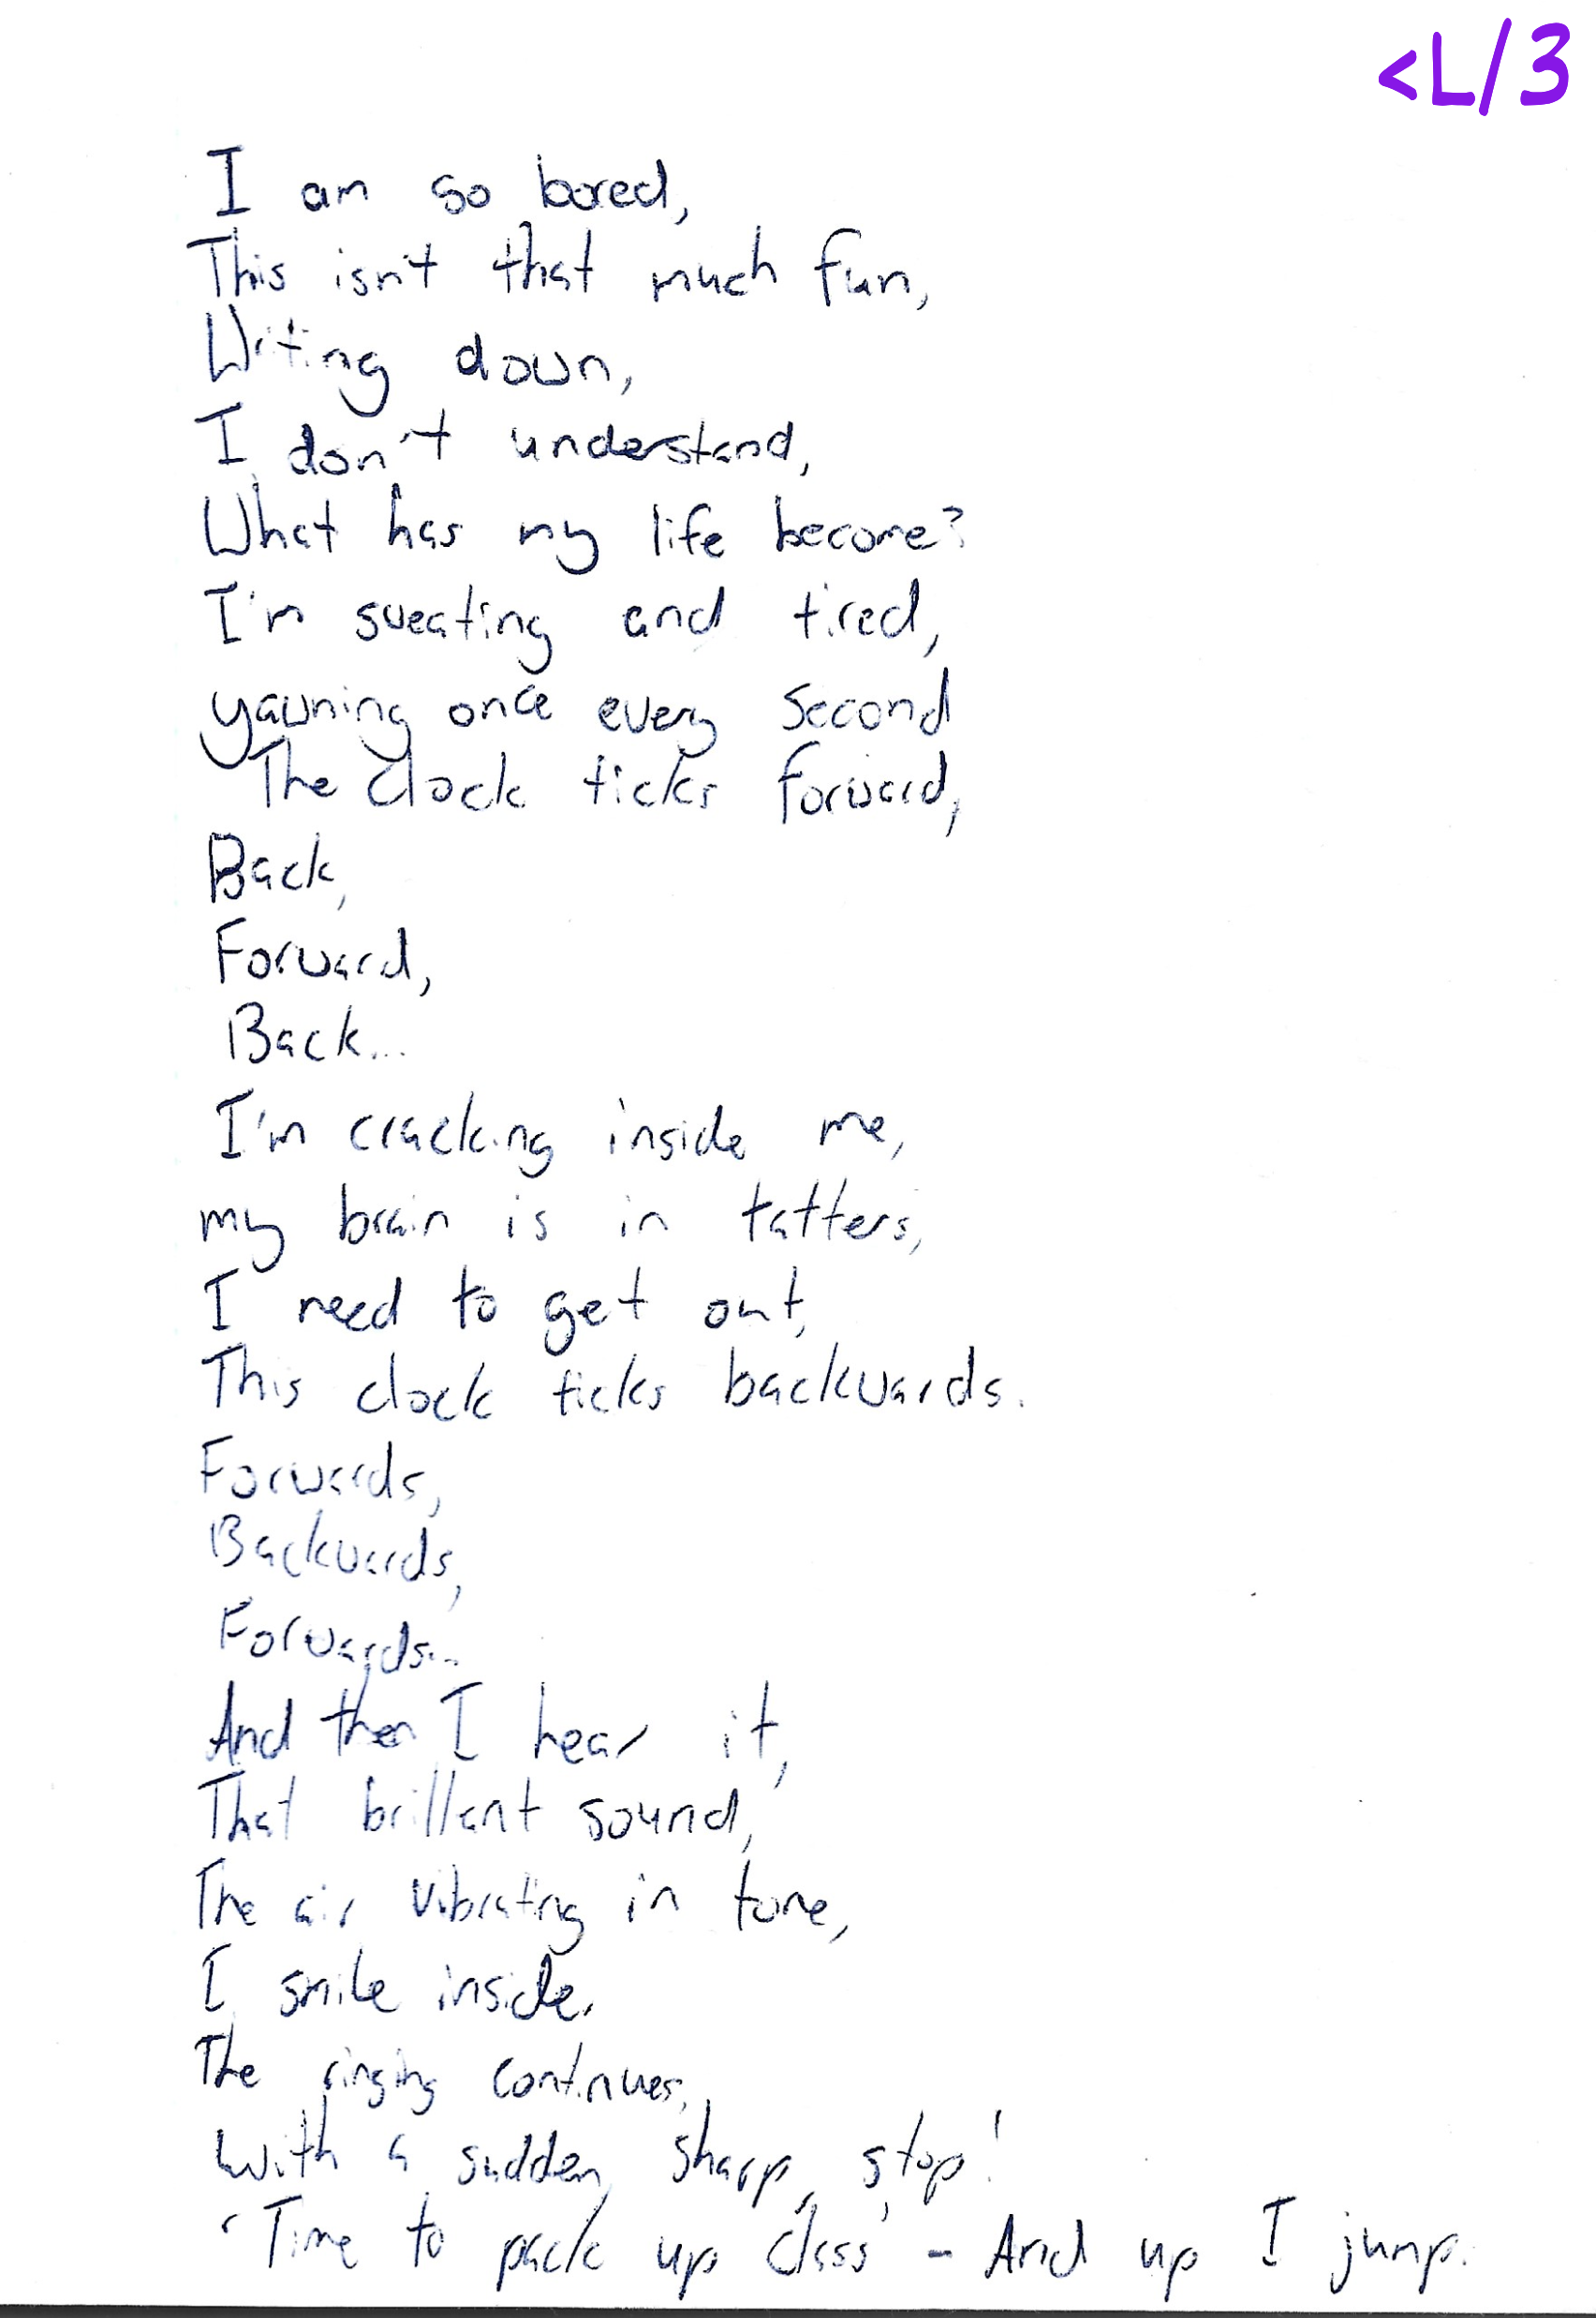 <L/3
I am so bored,
This isn't that much fun,
Writing down,
I don't understand,
What has my life become?
I'm sweating and tired,
yawning once every second
The clock ticks forward,
Back,
Forward,
Back...
I'm cracking inside me,
my brain is in tatters,
I need to get out,
This clock ticks backwards.
Forwards,
Backwards,
Forwards...
And then I hear it,
That brillant sound,
The air vibrating in tone,
I smile inside.
The ringing continues,
With a sudden, sharp, stop!
'Time to pack up class' - And up I jump.